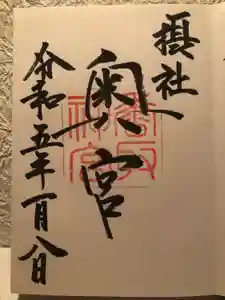 摂社
奥宮
令和五年一月八日
香取
神宮